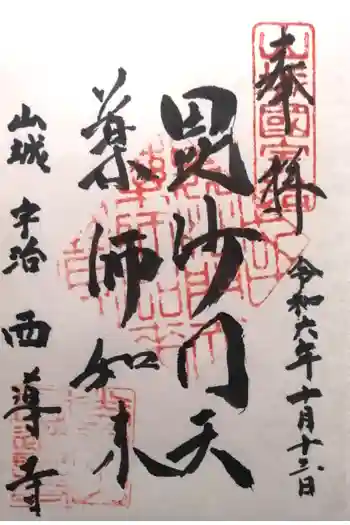 奉拝
令和六年十月十三日
毘沙门天
薬師如来
山城 宇治 西導寺